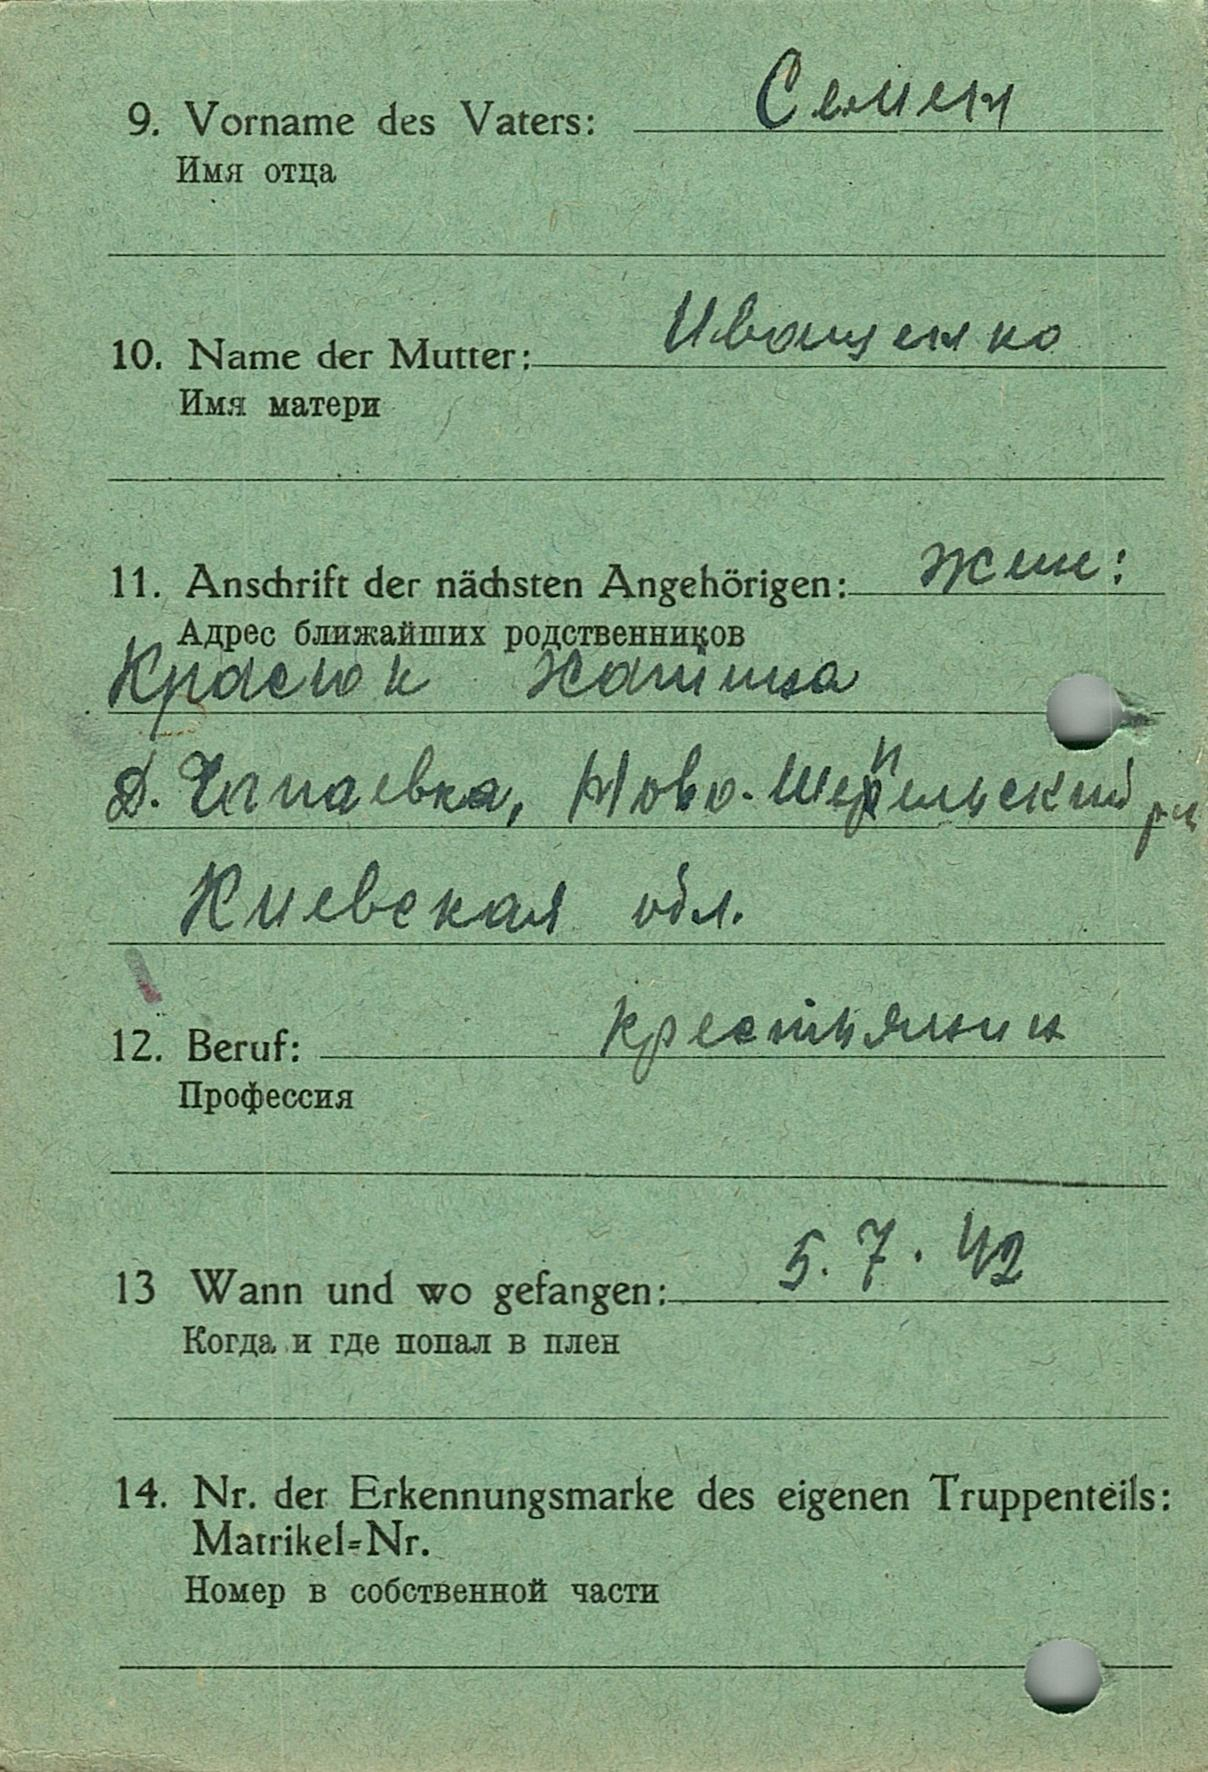 9. Vorname des Vaters: Семен
Имя отца
10. Name der Mutter: Иващенко
Имя матери
11. Anschrift der nächsten Angehörigen: жене:
Адрес ближайших родственников
Красюк
Д. Чапаевка, Ново-Шепельский
Киевская обл.
12. Beruf: крестьянин
Профессия
13 Wann und wo gefangen: 5.7.42
Когда и где попал в плен
14. Nr. der Erkennungsmarke des eigenen Truppenteils:
Matrikel=Nr.
Номер в собственной части